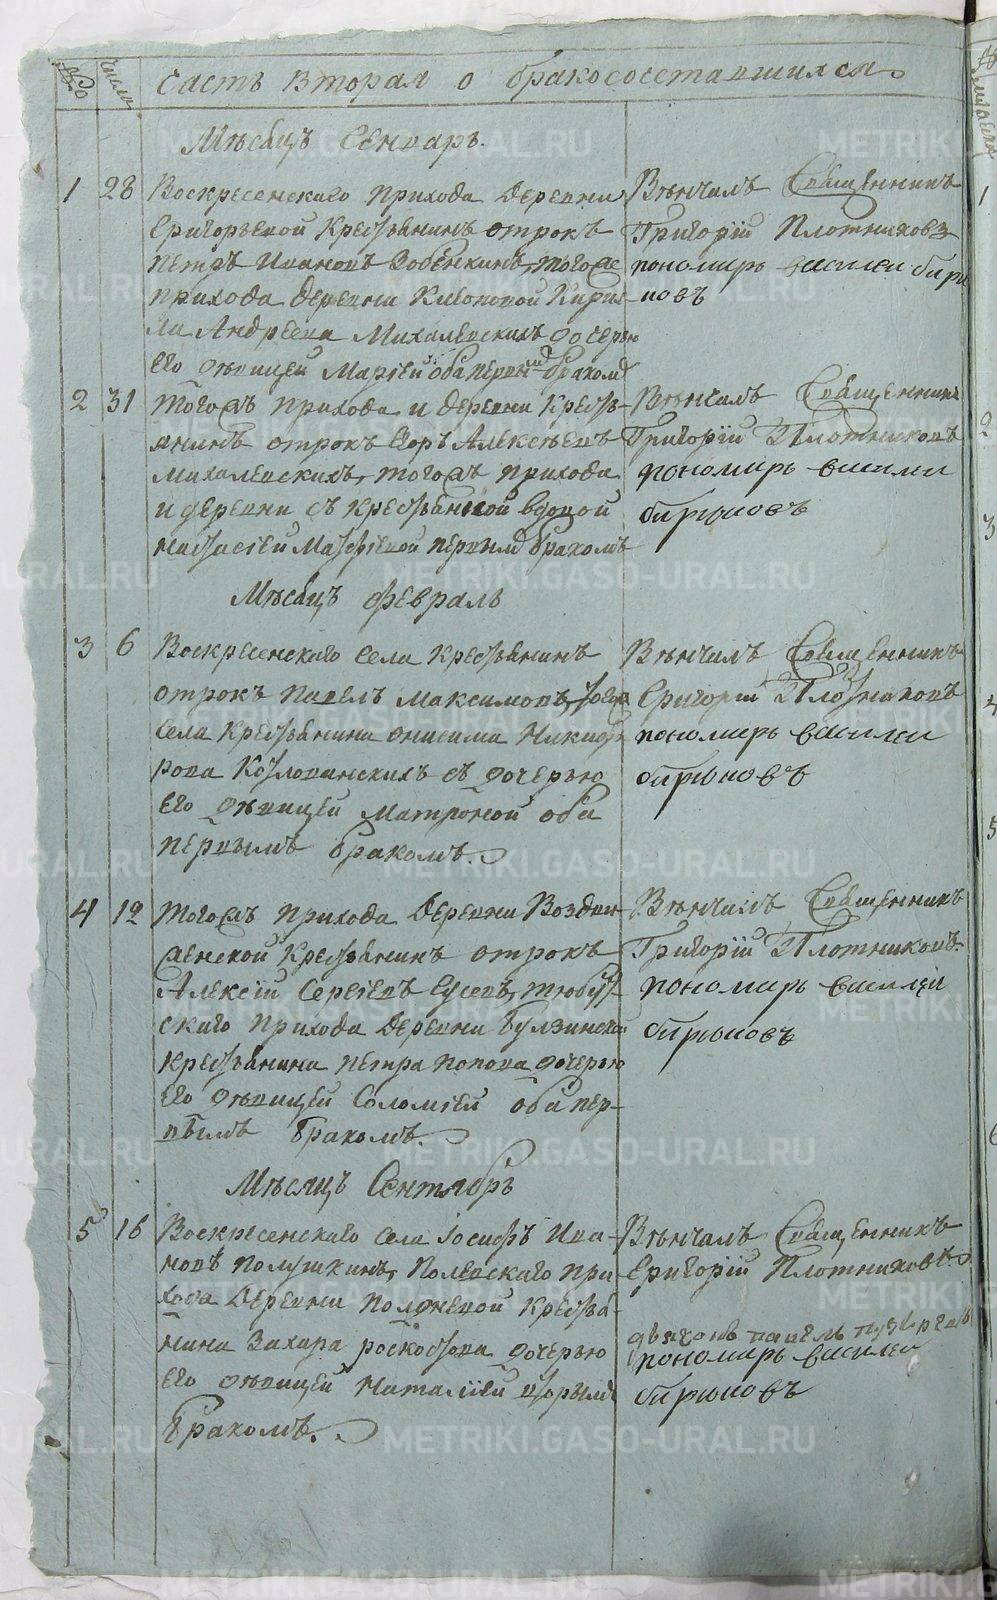 № Числа Часть Вторая о бракосочетавшихся.
Мѣсяцъ Генварь.
1 28 Воскресенскаго прихода деревни
Григорьевой крестьянинъ отрокъ
Петръ Ивановъ Зобенкинъ, тогожъ
прихода деревни Клеопиной Кири-
ла Андреева Михалевскихъ дочерью
его дѣвицей Маріей оба первымъ бракомъ
Вѣнчалъ Священникъ
Григорій Плотниковъ
пономарь василеи бирю
ковъ
2 31 Тогожъ прихода и деревни кресть-
янинъ отрокъ Егоръ Алексѣевъ
Михалевскихъ, тогожъ прихода
и деревни съ крестьянкой вдовой
Настасіей Матфѣевой первымъ бракомъ
Вѣнчалъ Священникъ
Григорій Плотниковъ
пономарь василеи
бирюковъ
Мѣсяцъ Февраль
3 6 Воскресенскаго села крестьянинъ
отрокъ Павелъ Максимовъ, тогожъ
села крестьянина Онисима Никифо
рова Козловинскихъ съ дочерью
его дѣвицей Матроной оба
первымъ бракомъ.
Вѣнчалъ Священникъ
Григорій Плотниковъ
пономарь василеи
бирюковъ
4 12 Тогожъ прихода деревни Воздви-
женской крестьянинъ отрокъ
Алексій Сергіевъ Гусевъ, тюбук-
скаго прихода деревни Булзинской
крестьянина Петра Попова дочерью
его дѣвицей Соломіей оба пер-
вымъ бракомъ.
Вѣнчалъ Священникъ
Григорій Плотниковъ.
пономарь василеи
бирюковъ
Мѣсяцъ Сентябрь
5 16 Воскресенскаго села Іосифъ Ива-
новъ Полушкинъ, Полевскаго при-
хода деревни Полдневой кресть-
янина Захара дочерью
его дѣвицей Наталіей вторымъ
бракомъ.
Вѣнчалъ Священникъ
Григорій Плотниковъ.
дьячокъ павелъ
пономарь василеи
бирюковъ
METRIKI.GASO-URAL.RU